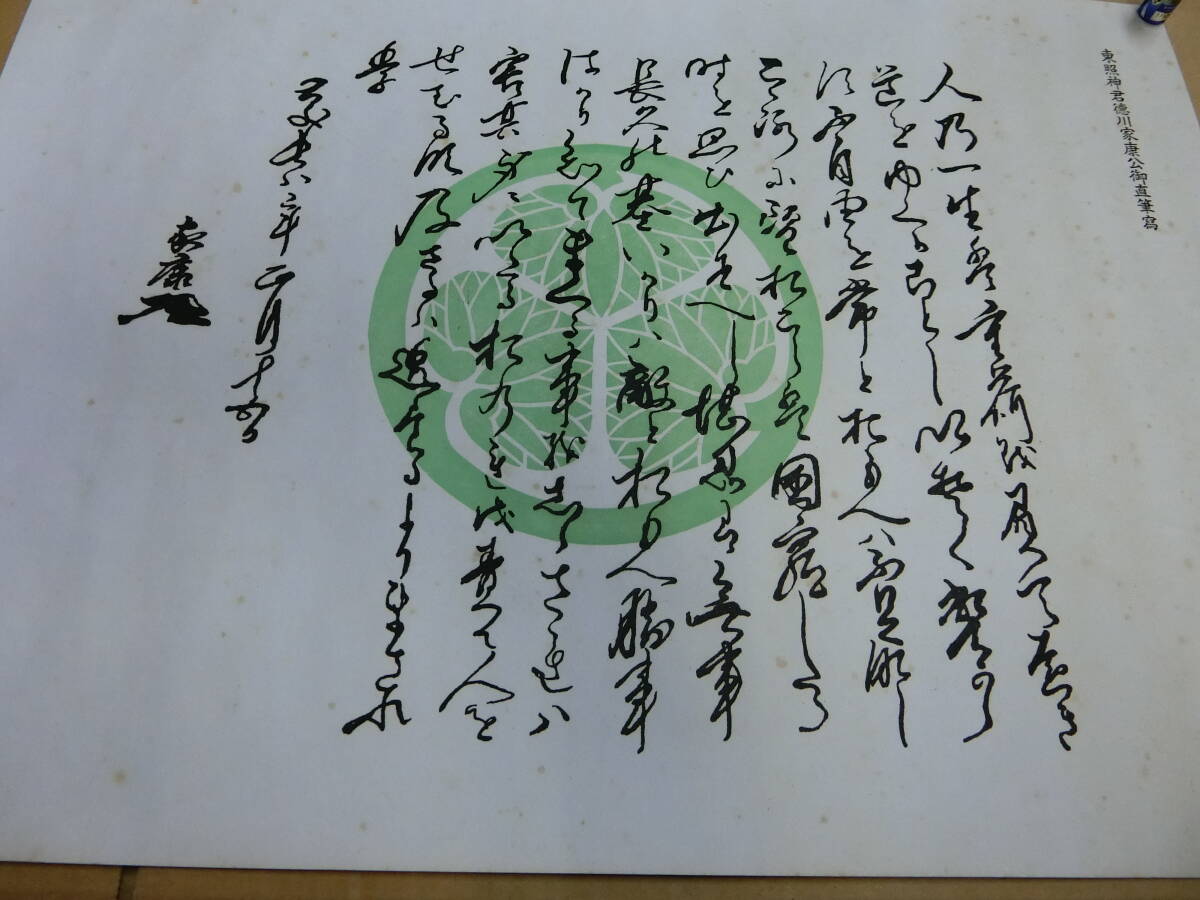 東照神君徳川家康公御直筆寫
人乃一生者重荷越負て遠き
道をゆくかことしいそくへから
須不自由を常とおもへハ不足那し
こゝろに望おこら者困窮したる
時を思ひ出須へし堪忍ハ無事
長久の基いかりハ敵とおもへ勝事
はかり知てまくる事越志らされハ
害其身にいたるおのれを責て人を
せむる那及さるハ過たるよりまされ
里
慶長八年正月十五日
家康